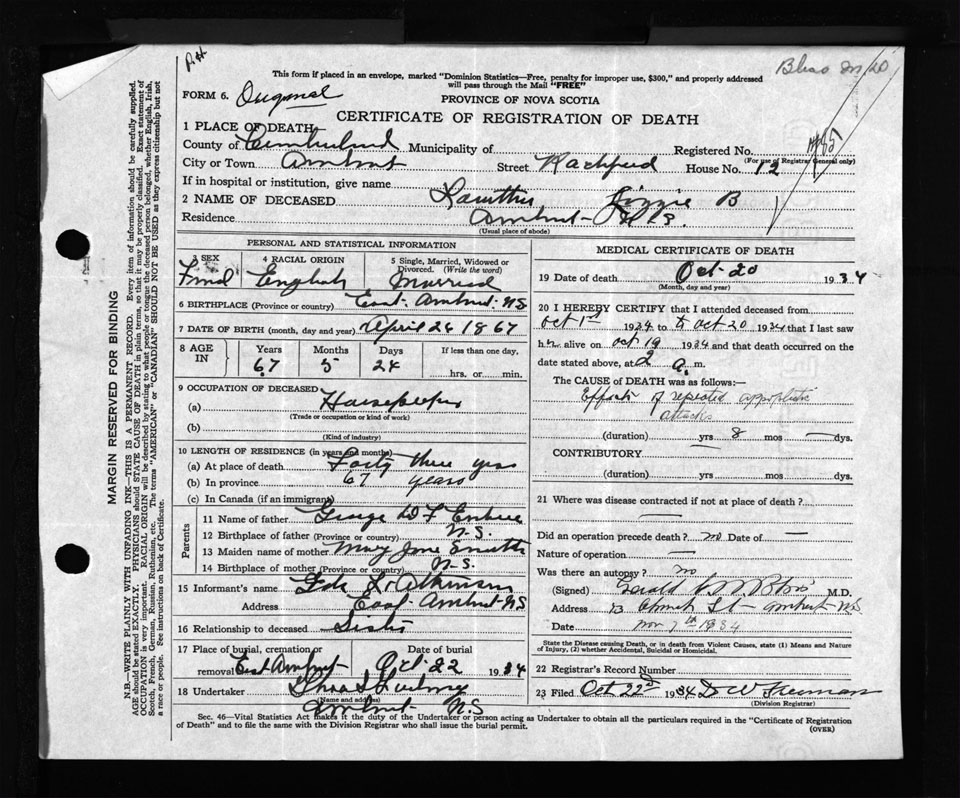 This form if placed in an envelope, marked "Dominion Statistics—Free, penalty for improper use, $300," and properly addressed
will pass through the Mail "FREE"
FORM 6.
PROVINCE OF NOVA SCOTIA
CERTIFICATE OF REGISTRATION OF DEATH
1 PLACE OF DEATH
County of Cumberland Municipality of Registered No.
(For use of Registrar General only)
City or Town Amherst Street House No. 12
If in hospital or institution, give name
2 NAME OF DECEASED Lizzie B
Residence Amherst N S.
(Usual place of abode)
MARGIN RESERVED FOR BINDING
N.B.—WRITE PLAINLY WITH UNFADING INK—THIS IS A PERMANENT RECORD. Every item of information should be carefully supplied.
AGE should be stated EXACTLY. PHYSICIANS should STATE CAUSE OF DEATH in plain terms, so that it may be properly classified. Exact statement of
OCCUPATION is very important. RACIAL ORIGIN will be described by stating to what people or tongue the deceased person belonged, whether English, Irish,
Scotch, French, German, Russian, Ruthenian, etc. The terms "AMERICAN" or "CANADIAN" SHOULD NOT BE USED as they express citizenship but not
a race or people. See instructions on back of Certificate.
PERSONAL AND STATISTICAL INFORMATION
3 SEX 4 RACIAL ORIGIN 5 Single, Married, Widowed or
Divorced. (Write the word)
English Married
6 BIRTHPLACE (Province or country) East Amherst NS
7 DATE OF BIRTH (month, day and year) April 26 1867
8 AGE IN
Years Months Days If less than one day.
67 5 24 hrs. or min.
9 OCCUPATION OF DECEASED
(a) Housekeeper
(Trade or occupation or kind of work)
(b)
(Kind of industry)
10 LENGTH OF RESIDENCE (in years and months)
(a) At place of death Forty three yrs
(b) In province 67 years
(c) In Canada (if an immigrant)
Parents
11 Name of father George W F Embree
12 Birthplace of father (Province or country) N.S.
13 Maiden name of mother Mary Jane Smith
14 Birthplace of mother (Province or country) N-S.
15 Informant's name Atkinson
Address East Amherst NS
16 Relationship to deceased Sister
17 Place of burial, cremation or Date of burial
removal East Amherst Oct. 22 1934
18 Undertaker
(Name and address)
Amherst N.S
MEDICAL CERTIFICATE OF DEATH
19 Date of death Oct 20 1934
(Month, day and year)
20 I HEREBY CERTIFY that I attended deceased from
Oct 1st 1934 to Oct 20 1934 that I last saw
her alive on Oct 19 1934 and that death occurred on the
date stated above, at 2 a. m.
The CAUSE of DEATH was as follows:—
Effects of repeated apoplectic
attacks
(duration) yrs 8 mos — dys.
CONTRIBUTORY
(duration) yrs mos dys.
21 Where was disease contracted if not at place of death? —
Did an operation precede death? no Date of —
Nature of operation —
Was there an autopsy? no
(Signed) M.D.
Address 13 Church St - Amherst NS
Date Nov 7th 1934
State the Disease causing Death, or in death from Violent Causes, state (1) Means and Nature
of Injury, (2) whether Accidental, Suicidal or Homicidal.
22 Registrar's Record Number
23 Filed Oct 22nd 1934 D W Freeman
(Division Registrar)
Sec. 46—Vital Statistics Act makes it the duty of the Undertaker or person acting as Undertaker to obtain all the particulars required in the "Certificate of Registration
of Death" and to file the same with the Division Registrar who shall issue the burial permit.
(OVER)